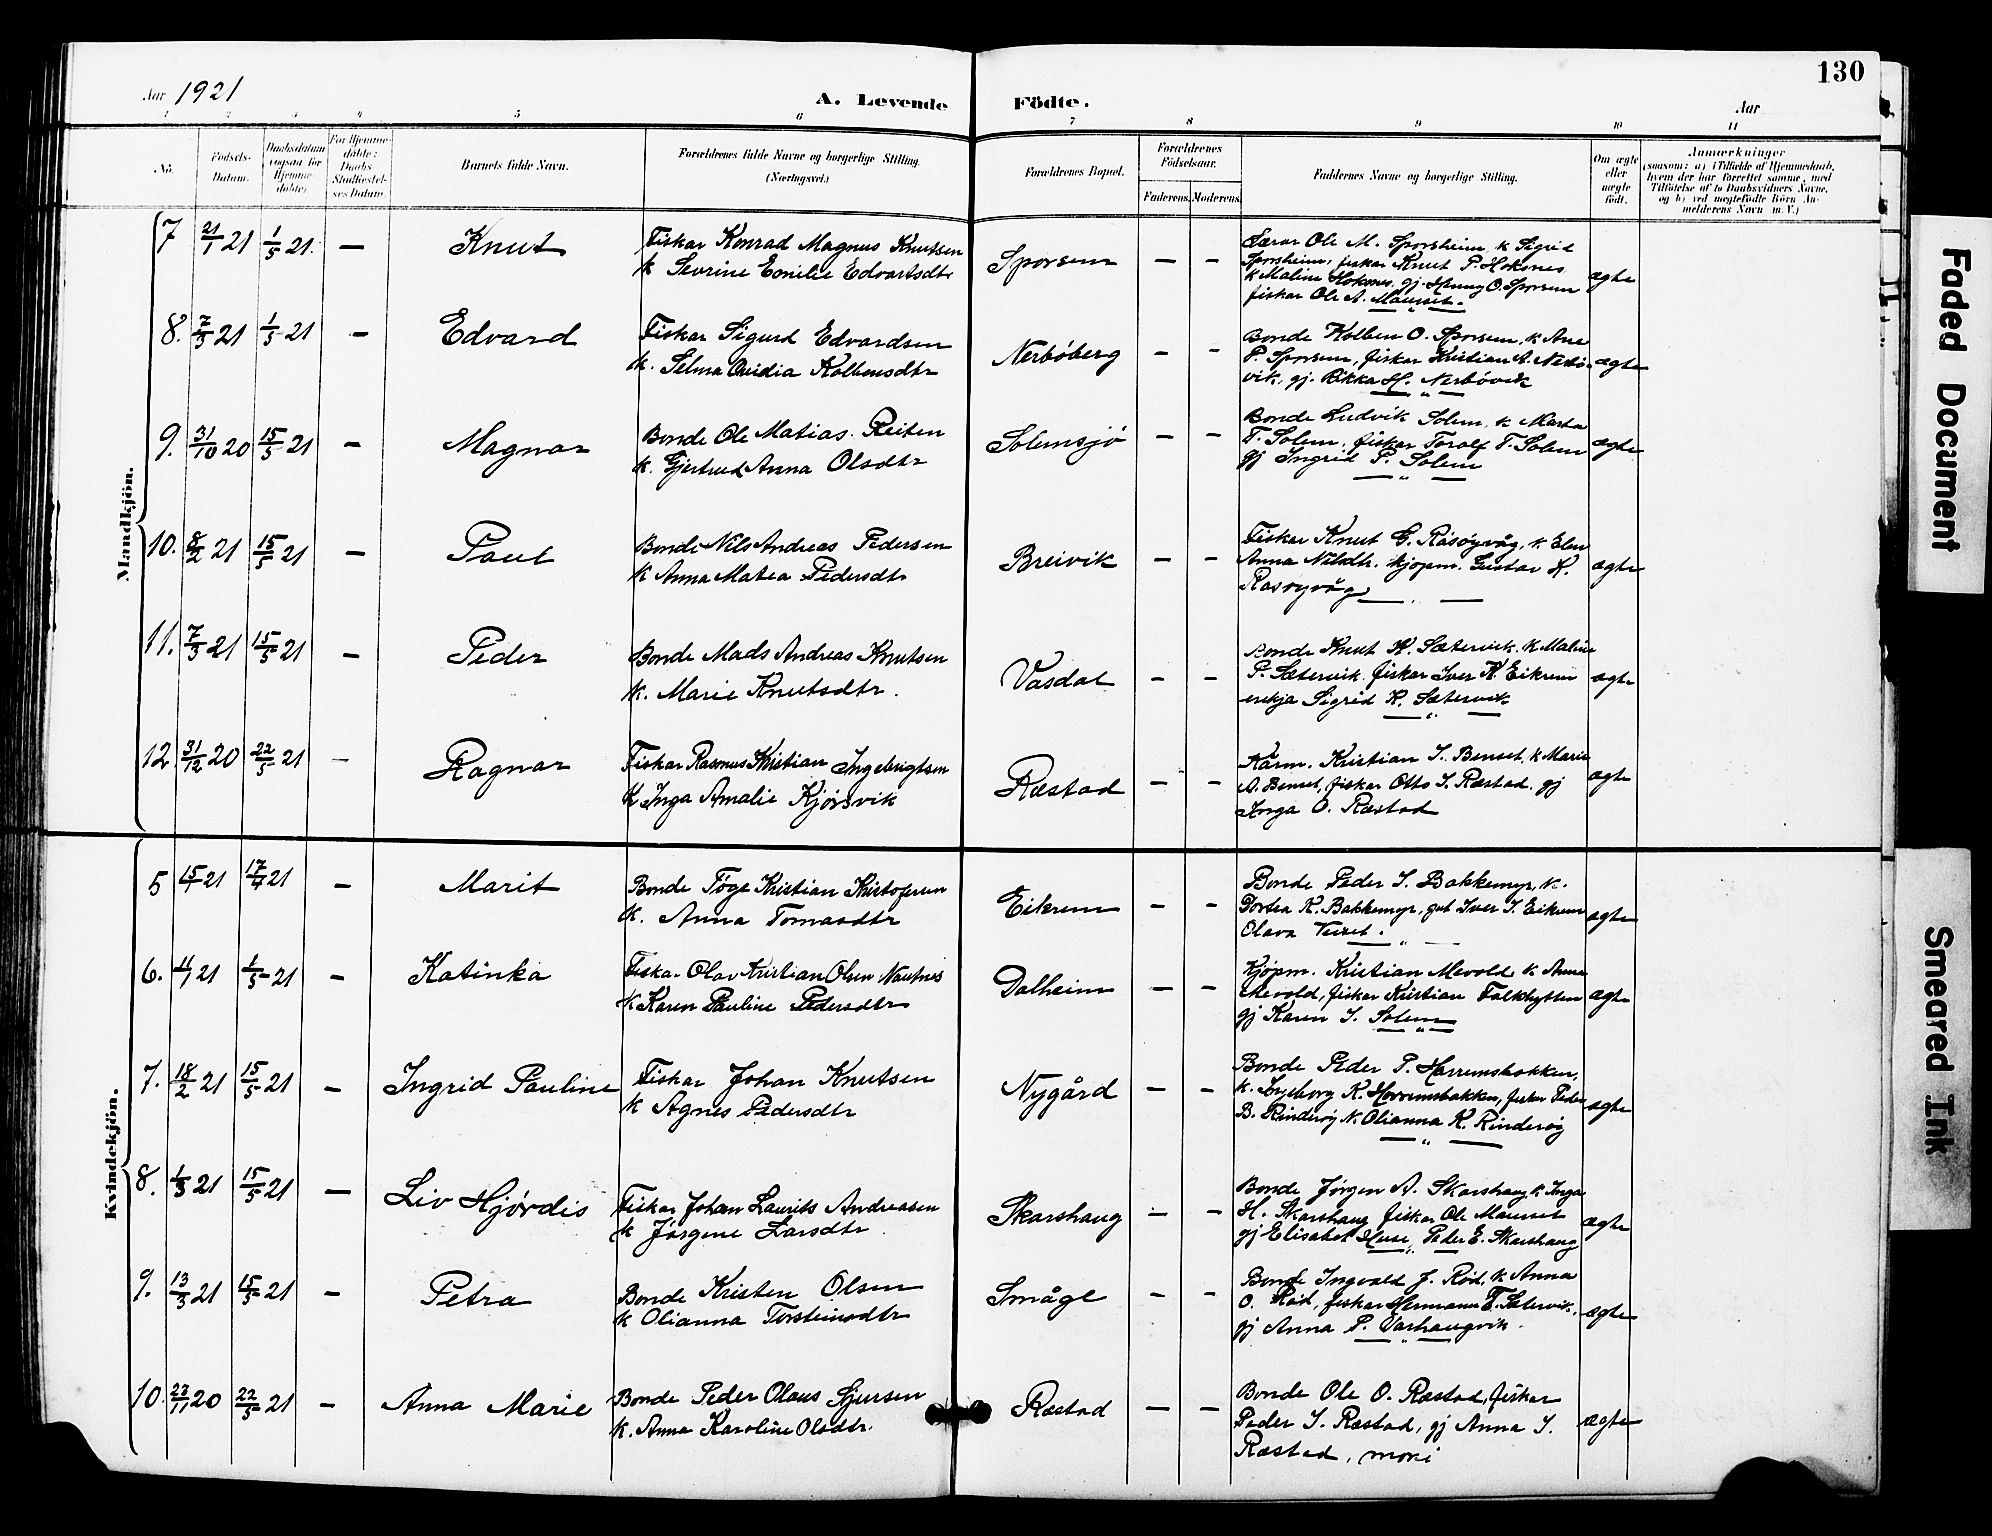 130
Aar 1921
A. Levende Födte.
Aar
1 2 3 4 5 6 7 8 9 10 11
No.
Födsels-
Datum.
Daabsdatum
(ogsaa for
Hjemme-
döbte).
For Hjemme-
döbte:
Daabs-
Stadfæstel-
ses Datum.
Barnets fulde Navn.
Forældrenes fulde Navne og borgerlige Stilling.
(Næringsvei.)
Forældrenes Bopæl.
Forældrenes
Födselsaar.
Faderens. Moderens.
Faddernes Navne og borgerlige Stilling.
Om ægte
eller
uægte
födt.
Anmærkninger
(saasom: a) i Tilfælde af Hjemmedaab,
hvem der har forrettet samme, med
Tilföielse af to Daabsvidners Navne,
og b) ved uægtefödte Börn An-
melderens Navn m. V.)
Mandkjön.
7 21/1 21 1/5 21. — Knut
Fiskar Konrad Magnus Knutsen
k Sevrine Emilie Edvartsdtr
Sporsem — —
Lærar Ole M. Sporsheim, k Sigrid
Sporsheim, fiskar Knut P. Hoksnes
k Maline Hoksnes, gj. Henny O. Sporsem
fiskar Ole A. Mauset.
ægte
8. 7/3 21 1/5 21 — Edvard
Fiskar Sigurd Edvardsen
k. Selma Ovidia Kolbensdtr
Nerbøberg — —
Bonde Kolben O. Sporsem, k Ane
P. Sporsem, fiskar Kristian A. Nerbø-
vik, gj. Rikka H. Nerbøvik
ægte
9. 31/10 20 15/5 21 — Magnar
Bonde Ole Matias Reiten
k. Gjertrud Anna Olsdtr
Solemsjø — —
Bonde Ludvik Solem, k Marta
T. Solem, fiskar Toralf T. Solem
gj Ingrid P. Solem
ægte
10. 8/2 21 15/5 21 — Paul
Bonde Nils Andreas Pedersen
k Anna Matea Pedersdtr
Breivik — —
Fiskar Knut G. Råsøyvåg, k. Elen
Anna Nilsdtr. kjøpm. Gustav K.
Rasøyvåg
ægte
11. 7/3 21 15/5 21 — Peder
Bonde Mads Andreas Knutsen
k. Marie Knutsdtr.
Vasdal — —
Bonde Knut K. Sætervik, k Maline
P. Sætervik fiskar Iver K Eikrem
enkja Sigrid K. Sætervik
ægte
12 31/12 20 22/5 21 — Ragnar
Fiskar Rasmus Kristian Ingebrigtsen
k Inga Amalie Kjørsvik
Ræstad — —
Kristian I. Benset, k Marie
A. Benset, fiskar Otto I. Ræstad. gj
Inga O. Ræstad
ægte
Kvindekjön.
5 15/1 21 17/4 21 — Marit
Bonde Tøge Kristian Kristofersen
k. Anna Tomasdtr
Eikrem — —
Bonde Peder I. Bakkemyr, k.
K. Bakkemyr, gut Iver I. Eikrem
Olava
ægte
6. 21 1/5 21 — Katinka
Fiskar Olav Kristian Olsen Nautnes
k Karen Pauline Pedersdtr
Dalheim — —
Kjøpm. Kristian Mevold, k Anna
Mevold, fiskar Kristian Falkhytten
gj Karen I. Solem
ægte
7. 18/2 21 15/5 21 — Ingrid Pauline
Fiskar Johan Knutsen
k Agnes Pedersdtr
Nygård — —
Bonde Peder P. Harremsbakken,
k. Ingeborg K. Harremsbakken, fiskar Peder
B. Rinderøy k. Olianna K. Rinderøy
ægte
8. 1/3 21 15/5 21 — Liv Hjørdis
Fiskar Johan Laurits Andreasen
k Jørgene Larsdtr
Skarshaug — —
Bonde Jørgen A. Skarshaug k Inga
H. Skarshaug fiskar Ole Mauset
gj Elisabet Huse, Peder E. Skarshaug
ægte
9. 13/3 21 15/5 21 — Petra
Bonde Kristen Olsen
k Olianna Torsteinsdtr
Småge — —
Bonde Ingvald J. Rød, k Anna
O. Rød, fiskar Hermann T. Sætervik.
gj Anna P. Varhaugvik.
ægte
10. 22/11 20 22/5 21 — Anna Marie
Bonde Peder Olaus Sjursen
k. Anna Karoline Olsdtr.
Ræstad — —
Bonde Ole O. Ræstad, fiskar
Peder I. Ræstad, gj Anna I.
Ræstad, mori
ægte
Faded Document
Smeared Ink